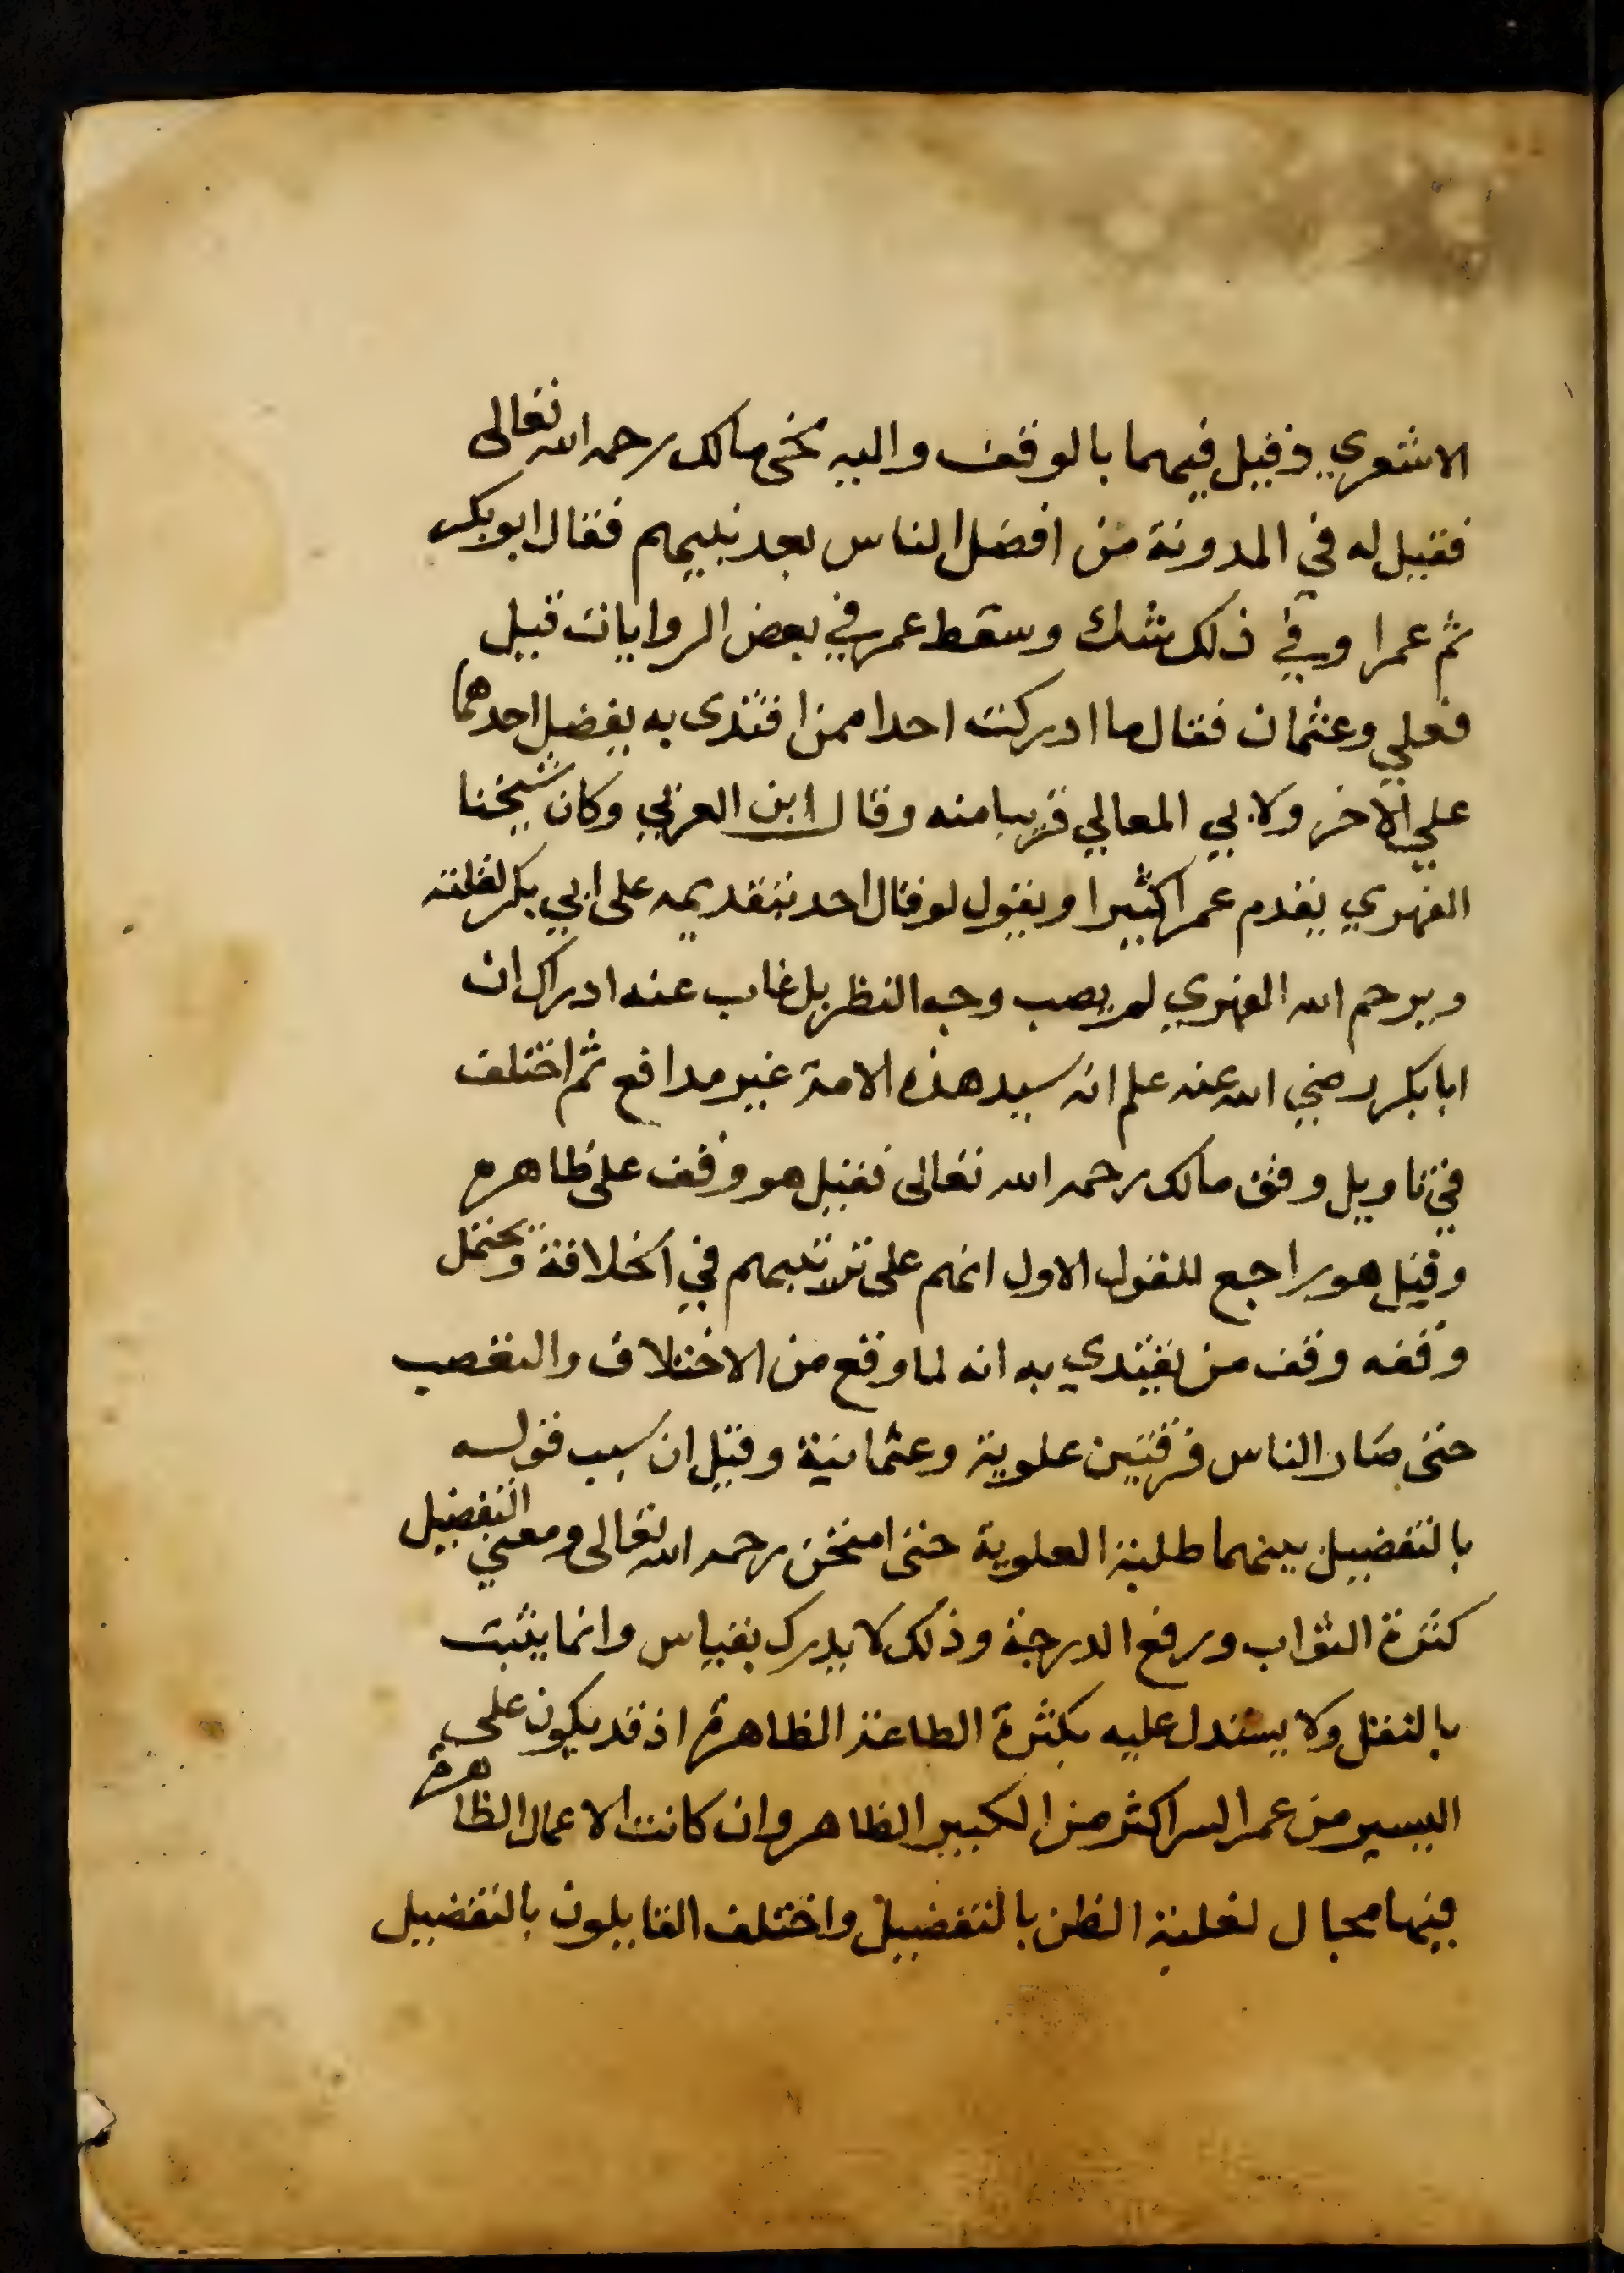 الاشعري وقيل فيهما بالوقف واليه نحى مالك رحمه الله تعالى
فقيل له في المدونة من افضل الناس بعد نبيهم فقال ابو بكر
ثم عمر او في ذلك شك وسقط عمر في بعض الروايات قيل
فعلي وعثمان فقال ما ادركت احدا ممن اقتدى به يفضل احدهما
علي الاخر ولابي المعالي قريبا منه وقال ابن العربي وكان شيخنا
الفهري يقدم عمر كثيرا ويقول لو قال احد بتقديمه على ابي بكر لقلته
ويرحم الله الفهري لم يصب وجه النظر بل غاب عنه ادراك ان
ابا بكر رضي الله عنه علم انه سيد هذه الامة غير مدافع ثم اختلف
في تاويل وقف مالك رحمه الله تعالى فقيل هو وقف على ظاهره
وقيل هو راجع للقول الاول انهم على ترتيبهم في الخلافة ويحتمل
وقفه وقف من يقتدي به انه لما وقع من الاختلاف والتعصب
حتى صار الناس فرقتين علوية وعثمانية وقيل ان سبب قوله
بالتفضيل بينهما طلبة العلوية حتى امتحن رحمه الله تعالى ومعني التفضيل
كثرة الثواب ورفع الدرجة وذلك لا يدرك بقياس وانما يثبت
بالنقل ولا يستدل عليه بكثرة الطاعة الظاهرة اذ قد يكون على
اليسير من عمر السر اكثر من الكبير الظاهر وان كانت الاعمال الظاهرة
فيها مجال لغلبة الظن بالتفضيل واختلف القايلون بالتفضيل